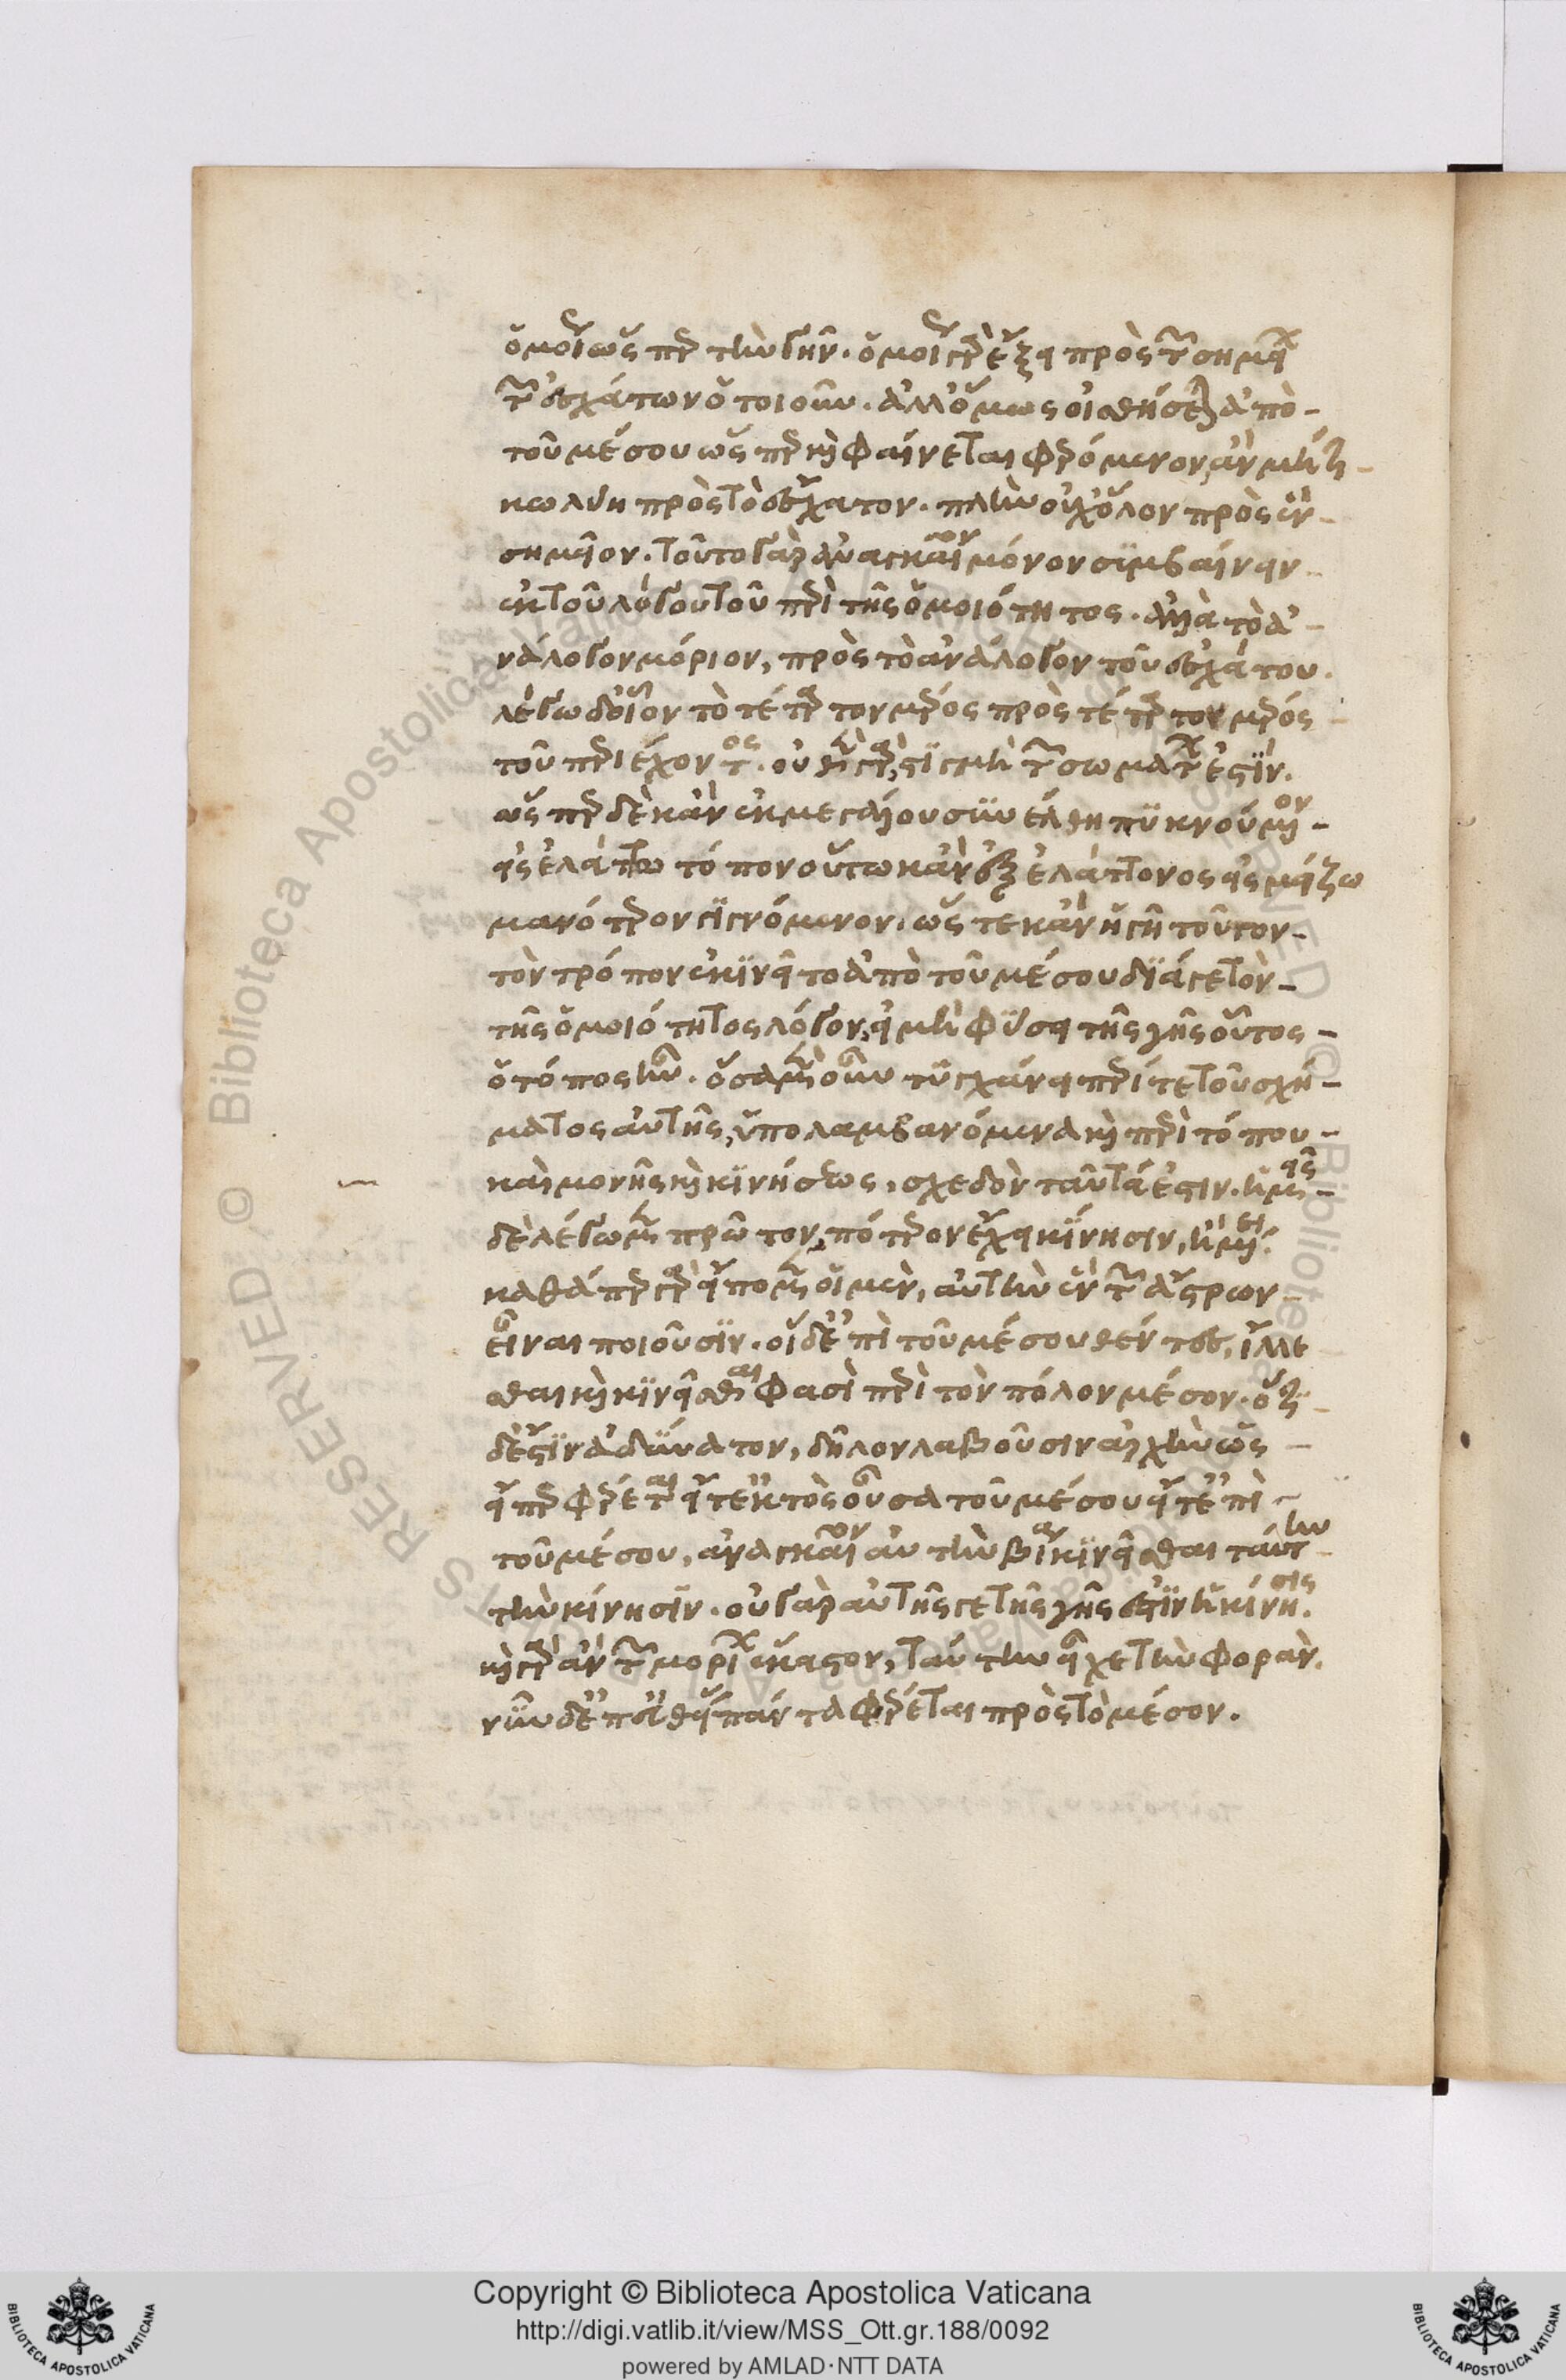 ὁμοίως ὥσπερ τὴν γῆν. ὁμοίως γὰρ ἕξει πρὸς τὰ σημεῖα
τῶν ἐσχάτων ὁτιοῦν. ἀλλ' ὅμως οἰσθήσεται ἀπὸ
τοῦ μέσου ὥσπερ καὶ φαίνεται φερόμενον, ἂν μή τι
κωλύῃ πρὸς τὸ ἔσχατον. πλὴν οὐχ ὅλον πρὸς ἓν
σημεῖον. τοῦτο γὰρ ἀναγκαῖον μόνον συμβαίνειν
ἐκ τοῦ λόγου τοῦ περὶ τῆς ὁμοιότητος. ἀλλὰ τὸ ἀ-
νάλογον μόριον, πρὸς τὸ ἀνάλογον τοῦ ἐσχάτου.
λέγω δ' οἷον τὸ τέταρτον μέρος πρὸς τέταρτον μέρος
τοῦ περιέχοντος. οὐδὲν γὰρ στιγμὴ τῶν σωμάτων ἐστίν.
ὥσπερ δὲ κἂν ἐκ μεγάλου συνέλθῃ πυκνούμενον
εἰς ἐλάττω τόπον οὕτω κἂν ἐξ ἐλάττονος εἰς μείζω
μανότερον γιγνόμενον. ὥστε κἂν ἡ γῆ τοῦτον
τὸν τρόπον ἐκινεῖτο ἀπὸ τοῦ μέσου διά γε τὸν
τῆς ὁμοιότητος λόγον, εἰ μὴ φύσει τῆς γῆς οὗτος
ὁ τόπος ἦν. ὅσα μὲν οὖν τυγχάνει περί τε τοῦ σχή-
ματος αὐτῆς, ὑπολαμβανόμενα καὶ περὶ τόπου
καὶ μονῆς καὶ κινήσεως, σχεδὸν ταῦτά ἐστιν. ἡμεῖς
δὲ λέγωμεν πρῶτον, πότερον ἔχει κίνησιν, ἢ μένει.
καθάπερ γὰρ εἴπομεν οἱ μὲν, αὐτὴν ἓν τῶν ἄστρων
εἶναι ποιοῦσιν. οἱ δ' ἐπὶ τοῦ μέσου θέντες, ἴλλε
σθαι καὶ κινεῖσθαι φασὶ περὶ τὸν πόλον μέσον. ὅτι
δέ ἐστιν ἀδύνατον, δῆλον λαβοῦσιν ἀρχὴν ὡς
εἴπερ φέρεται εἴτ' ἐκτὸς οὖσα τοῦ μέσου εἴτ' ἐπὶ
τοῦ μέσου, ἀναγκαῖον αὐτὴν βίᾳ κινεῖσθαι ταύτην
τὴν κίνησιν. οὐ γὰρ αὐτῆς γε τῆς γῆς ἐστὶν ἡ κίνησις.
καὶ γὰρ ἂν τῶν μορίων ἕκαστον, ταύτην εἶχε τὴν φοράν.
νῦν δ' ἐπ' εὐθείας πάντα φέρεται πρὸς τὸ μέσον.
Copyright © Biblioteca Apostolica Vaticana
http://digi.vatlib.it/view/MSS_Ott.gr.188/0092
powered by AMLAD·NTT DATA